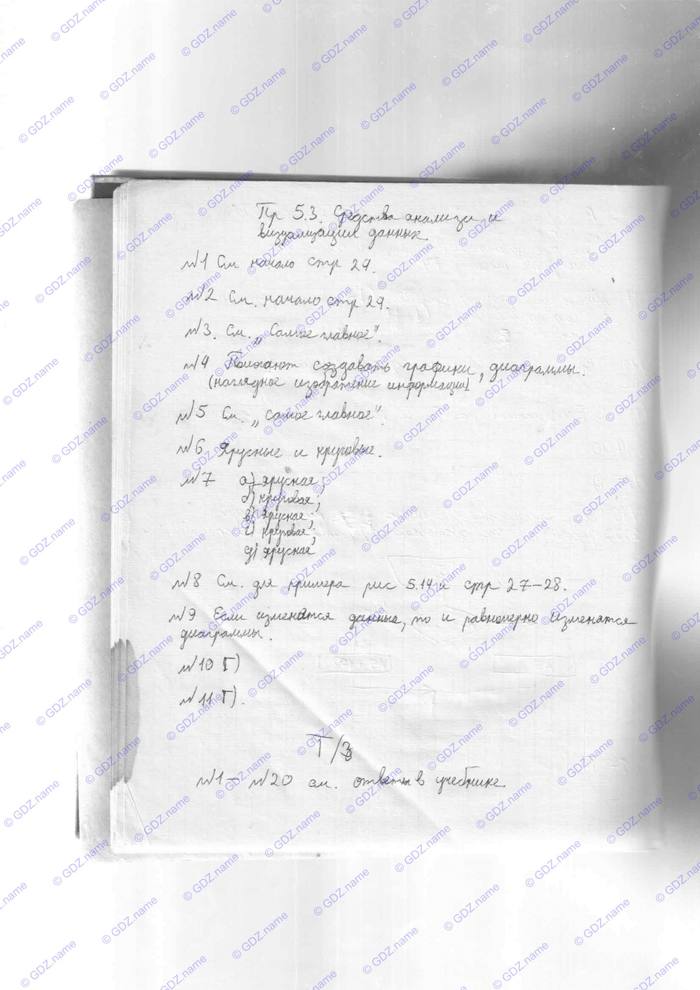 Пр 5.3. Средства анализа и
визуализации данных.
№1 См начало стр 29.
№2 См. начало стр 29.
№3. См. „Самое главное".
№4 Помогают создавать графики, диаграммы.
(наглядное изображение информации)
№5 См. „самое главное".
№6 Ярусные и круговые.
№7 а) ярусная;
б) круговая;
в) ярусная;
г) круговая;
д) ярусная
№8 См. для примера рис 5.14 и стр 27-28.
№9 Если изменятся данные, то и равномерно изменятся
диаграммы.
№10 Г)
№11 Г).
Т/З
№1 - №20 см. ответы в учебнике
© GDZ.name